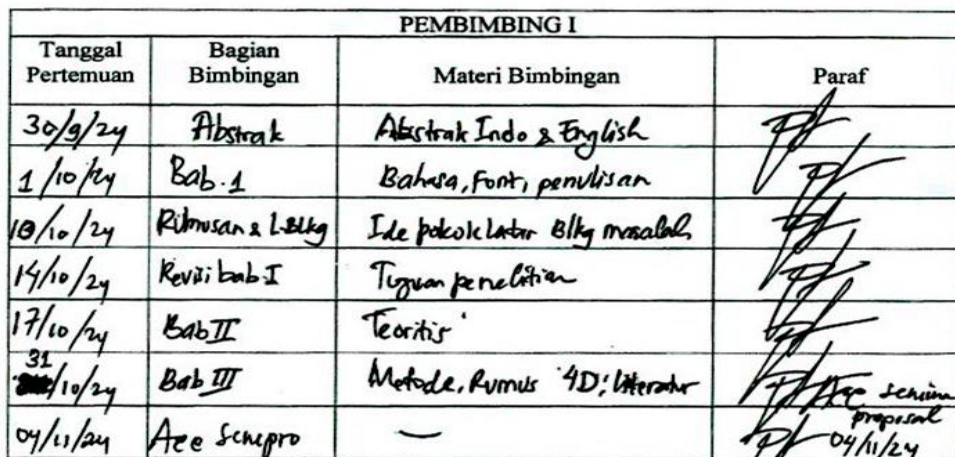 PEMBIMBING I
Tanggal Pertemuan Bagian Bimbingan Materi Bimbingan Paraf
30/9/24 Abstrak Abstrak Indo & English
1/10/24 Bab.1 Bahasa, Font, penulisan
10/10/24 Rumusan & L.Blkg Ide pokok Latar Blkg masalah
14/10/24 Revisi bab I Tujuan penelitian
17/10/24 Bab II Teoritis
31/10/24 Bab III Metode, Rumus 4D, literatur
Acc
proposal
04/11/24 Acc Sempro — 04/11/24